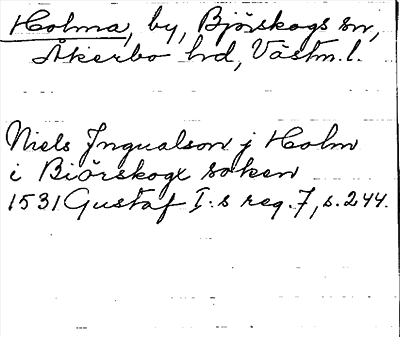 Holma, by, Björskogs sn,
Åkerbo hd, Västm. l.
Niels Ingualson j Holm
i Biörskoge soken
1531 Gustaf I:s reg. 7, s. 244.